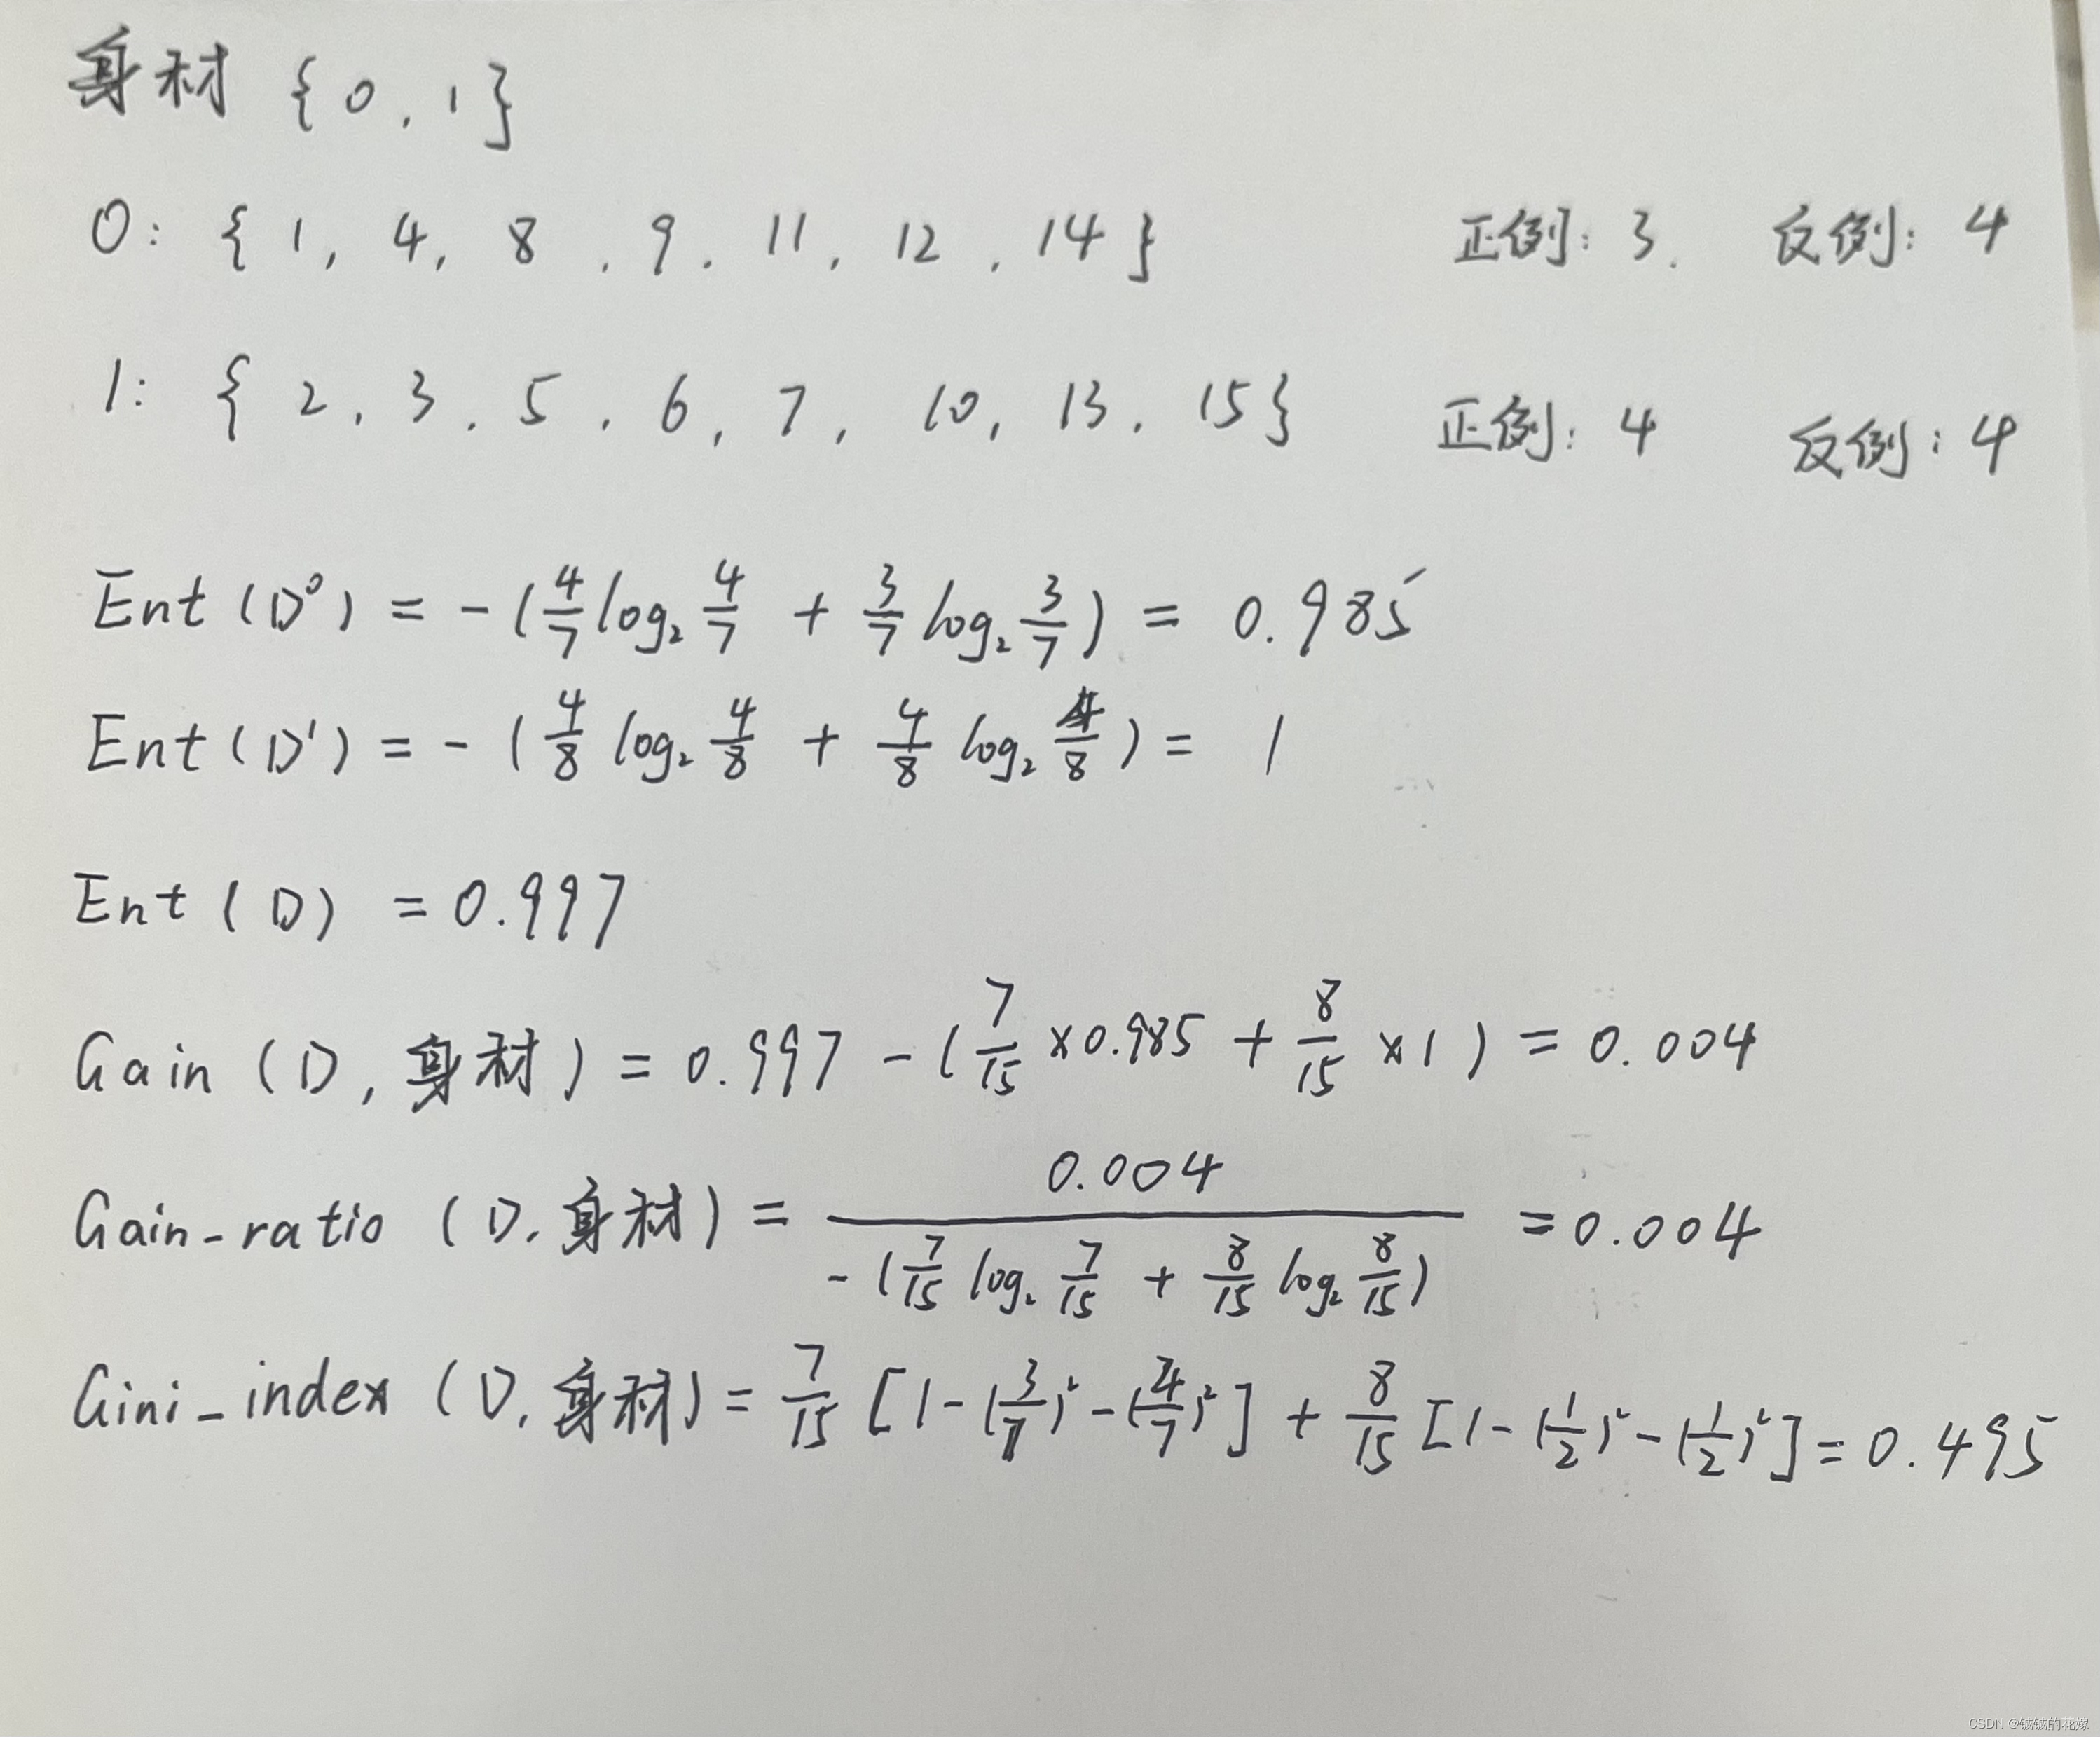 身材 {0, 1}
0: {1, 4, 8, 9, 11, 12, 14} 正例: 3, 反例: 4
1: {2, 3, 5, 6, 7, 10, 13, 15} 正例: 4 反例: 4
Ent(D⁰) = -(4/7 log₂ 4/7 + 3/7 log₂ 3/7) = 0.985
Ent(D¹) = -(4/8 log₂ 4/8 + 4/8 log₂ 4/8) = 1
Ent(D) = 0.997
Gain(D, 身材) = 0.997 - (7/15 ×0.985 + 8/15 ×1) = 0.004
Gain_ratio(D, 身材) = 0.004 / -(7/15 log₂ 7/15 + 8/15 log₂ 8/15) = 0.004
Gini_index(D, 身材) = 7/15 [1-(3/7)²-(4/7)²] + 8/15 [1-(1/2)²-(1/2)²] = 0.495
CSDN @铖铖的花嫁